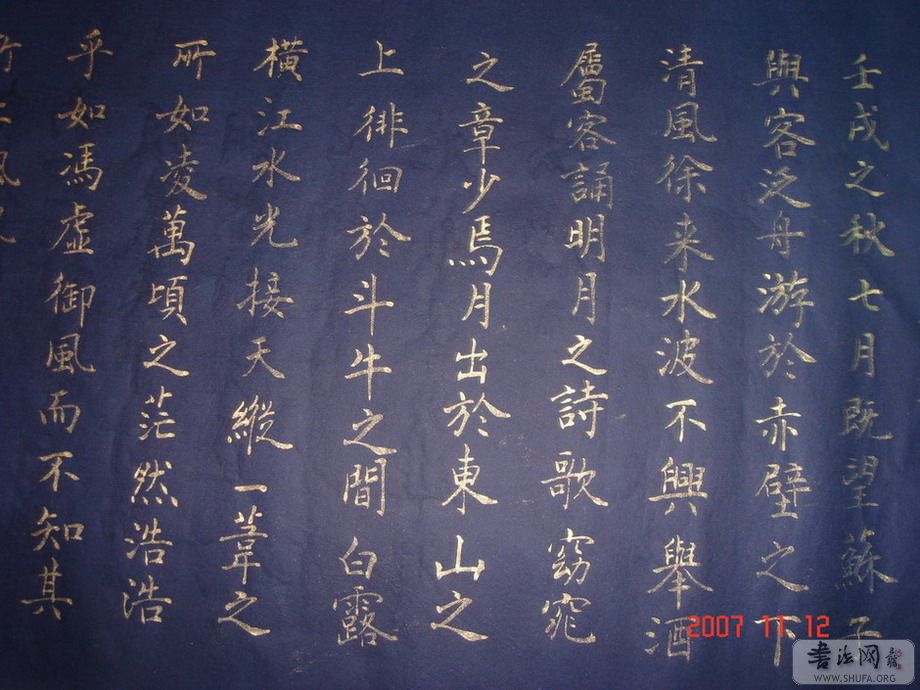 壬戌之秋七月既望蘇子
與客泛舟游於赤壁之下
清風徐来水波不興舉酒
屬客誦明月之詩歌窈窕
之章少焉月出於東山之
上徘徊於斗牛之間白露
橫江水光接天縱一葦之
所如凌萬頃之茫然浩浩
乎如馮虛御風而不知其
所止
2007 11 12
書法网
WWW.SHUFA.ORG